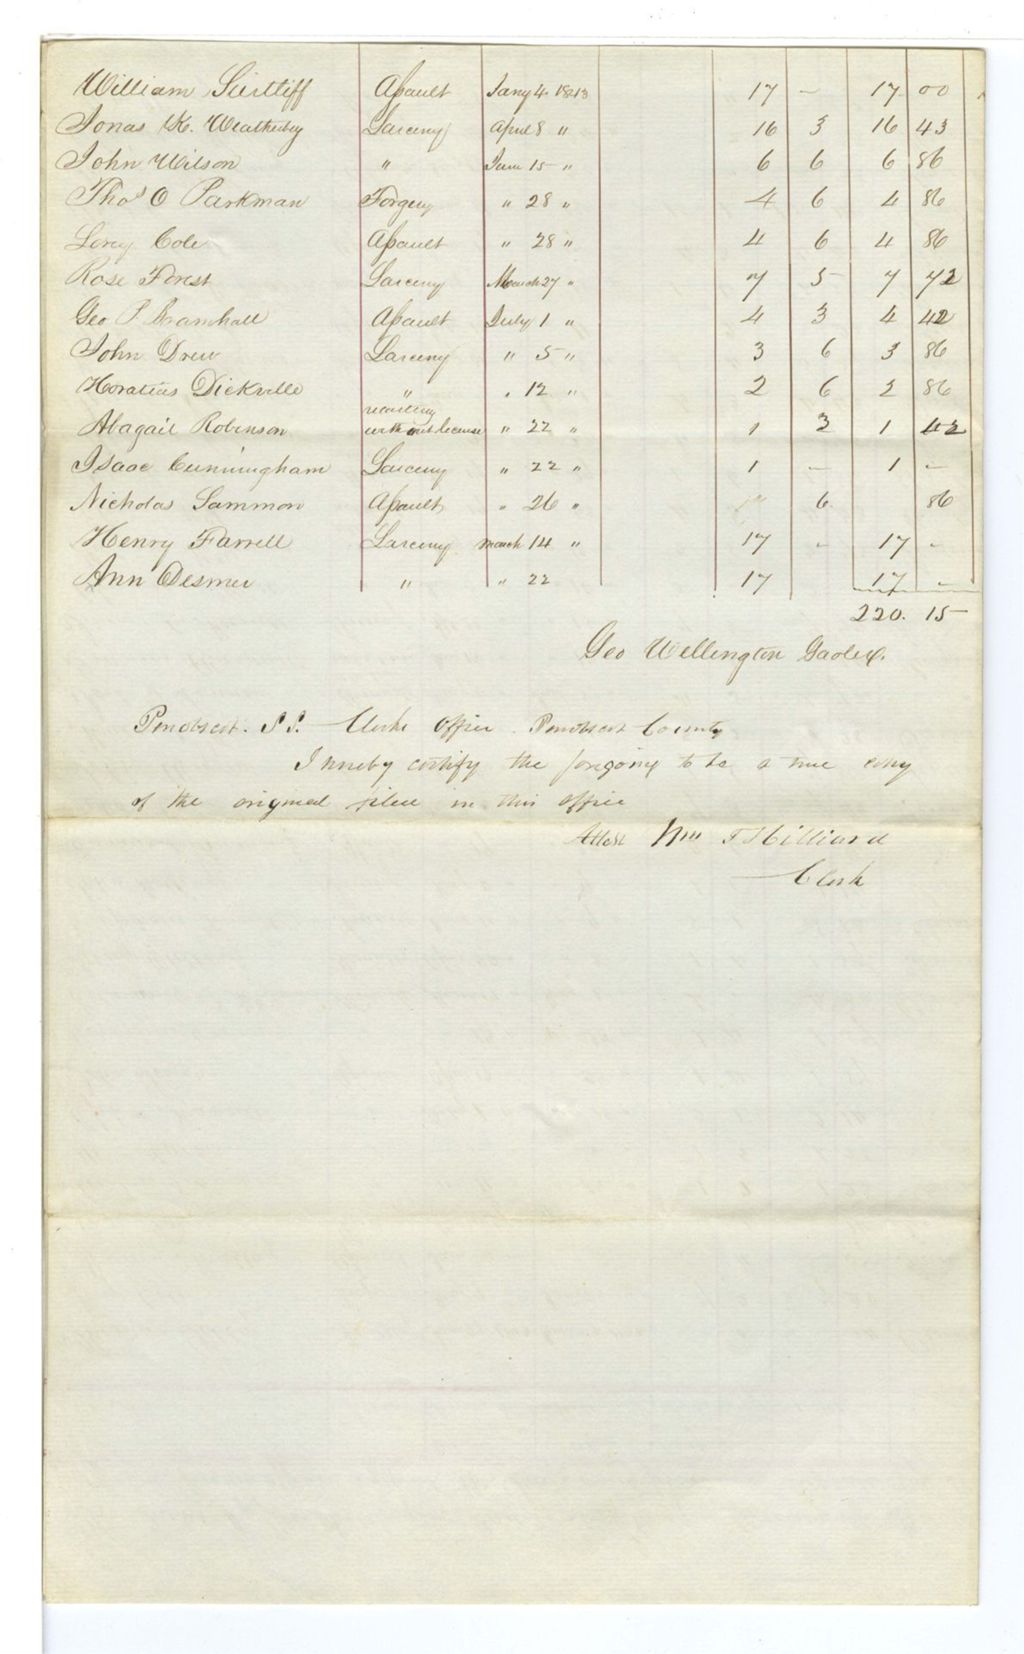 William Surtliff Assault Jany 4 1843 17 – 17 00
Jonas K. Weatherby Larceny April 8 " 16 3 16 43
John Wilson " June 15 " 6 6 6 86
Thos O Parkman Forgery " 28 " 4 6 4 86
Lorey Cole Assault " 28 " 4 6 4 86
Rose Forest Larceny March 27 " 7 5 7 72
Geo P Bramhall Assault July 1 " 4 3 4 42
John Drew Larceny " 5 " 3 6 3 86
Horatius Dickville " " 12 " 2 6 2 86
Abagail Robinson retailing without license " 22 " 1 3 1 42
Isaac Cunningham Larceny " 22 " 1 – 1 –
Nicholas Sammon Assault " 26 " 6 86
Henry Farrell Larceny March 14 " 17 – 17 –
Ann Desmer " " 22 17 17 –
220. 15
Geo Wellington Gaoler.
Penobscot. SS. Clerks Office Penobscot County
I hereby certify the foregoing to be a true copy
of the original filed in this office
Attest Wm T Hilliard
Clerk